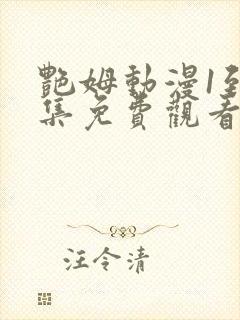 艷姆動漫1至
集免費觀看
汪令清